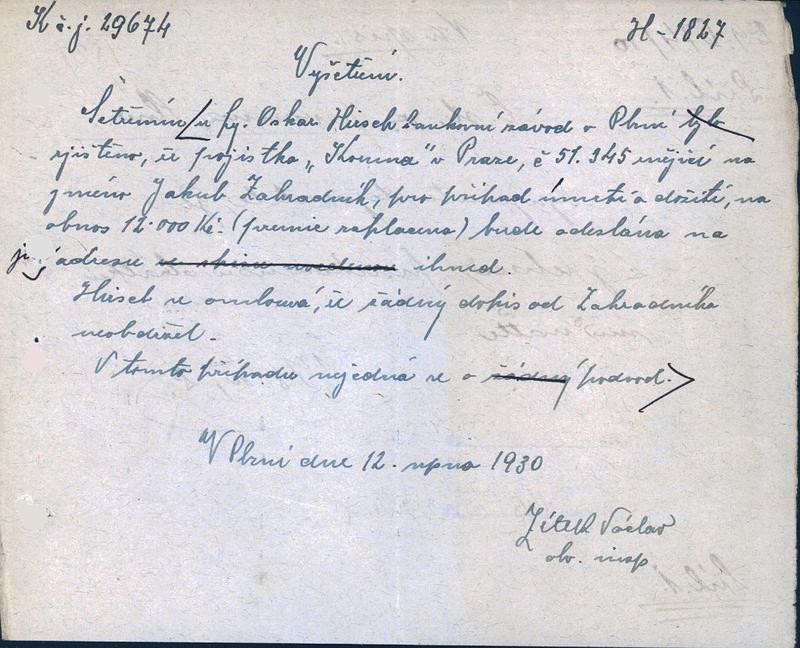 K č.j. 29674
H - 1827
Vyšetření.
Šetřením u fy. Oskar Hirsch bankovní závod v Plzni bylo
zjištěno, že pojistka „Koruna" v Praze, č 51.345 nějící na
jméno Jakub Zahradník, pro případ úmrtí a dožití, na
obnos 12.000 Kč. (premie zaplacena) bude odeslána na
jej. adresu ve spisu uvedenou ihned.
Hirsch se omlouvá, že řádný dopis od Zahradníka
neobdržel.
V tomto případu nejedná se o žádný podvod.
V Plzni dne 12. srpna 1930
Zítek Václav
ob. insp